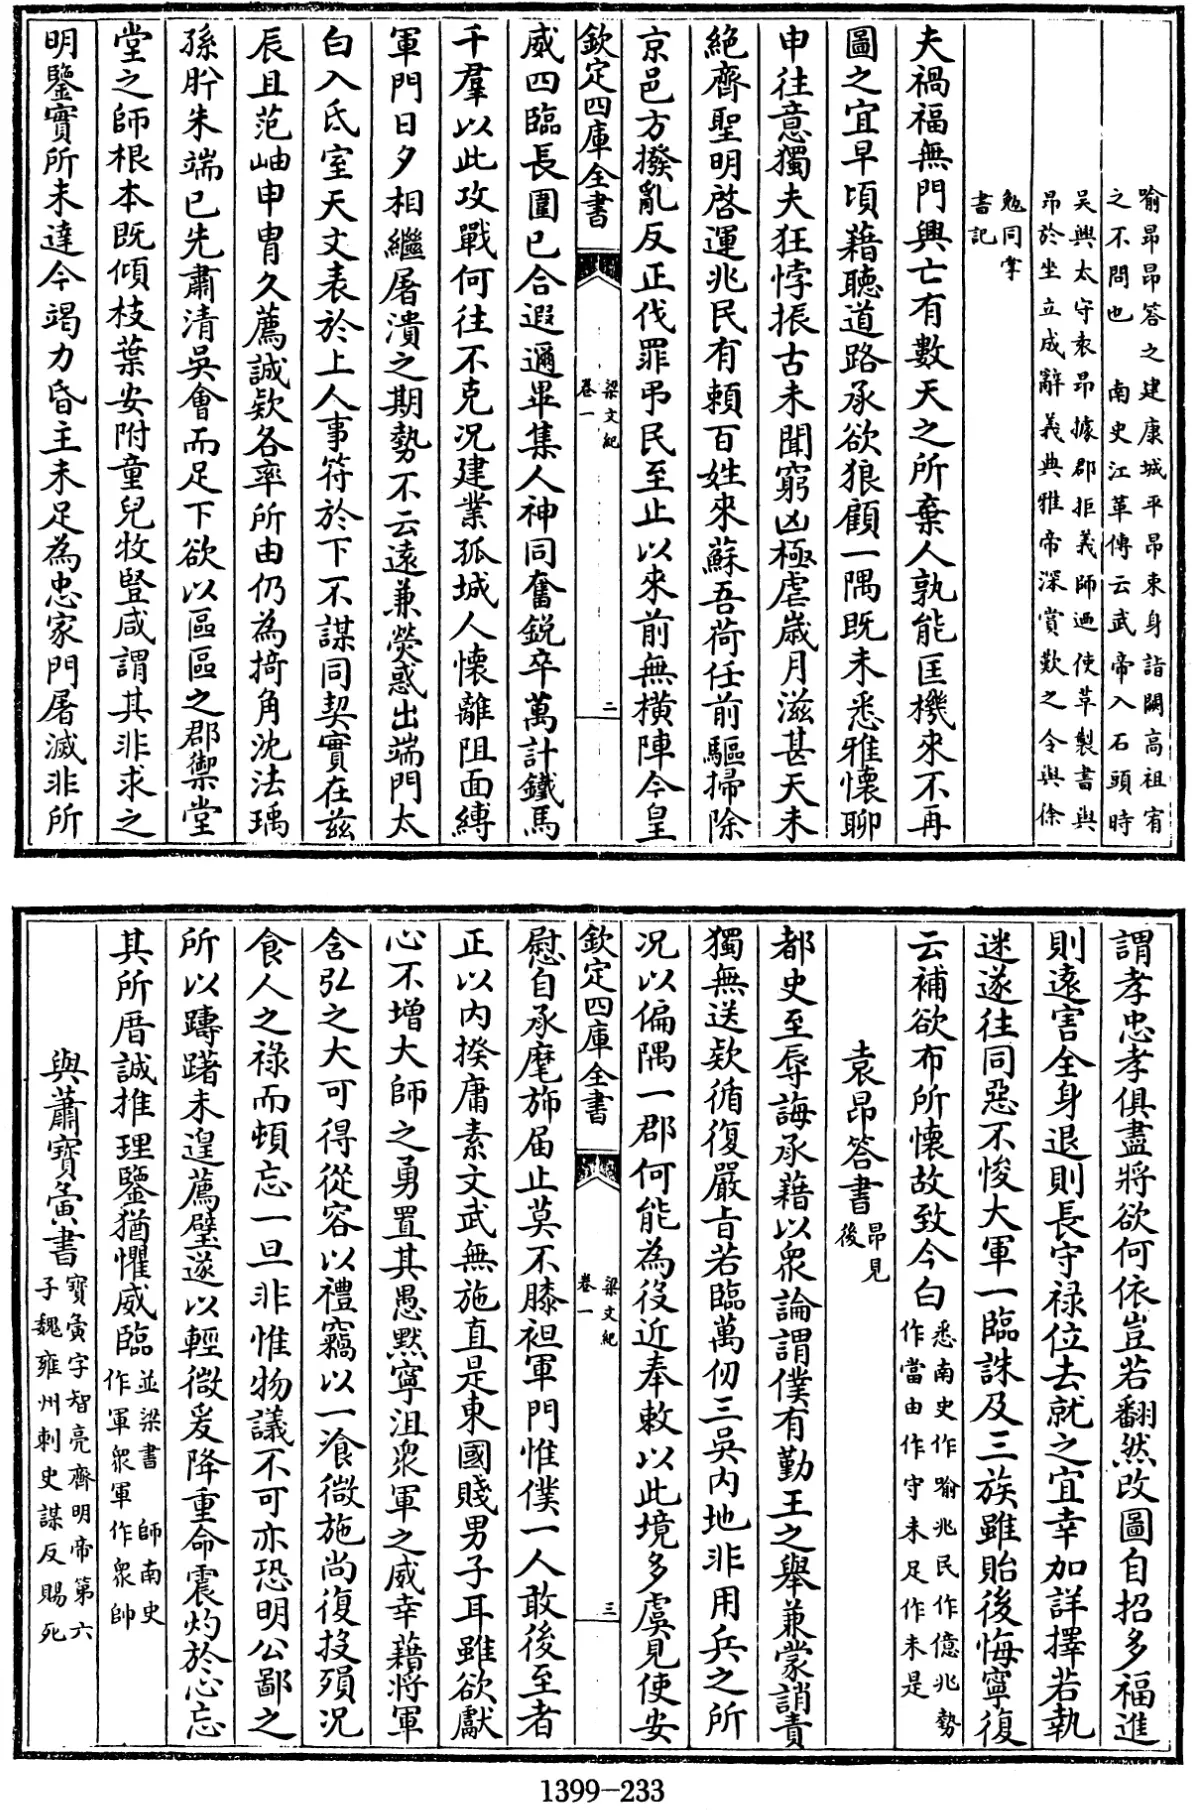 喻昂昂答之建康城平昂束身詣闕高祖宥
之不問也　南史江革傳云武帝入石頭時
吳興太守袁昂據郡拒義師迺使革製書與
昂於坐立成辭義典雅帝深賞歎之令與徐
勉同掌
書記
夫禍福無門興亡有數天之所棄人孰能匡機來不再
圖之宜早頃藉聽道路承欲狼顧一隅既未悉雅懷聊
申往意獨夫狂悖振古未聞窮凶極虐歲月滋甚天未
絕齊聖明啓運兆民有賴百姓來蘇吾荷任前驅掃除
京邑方撥亂反正伐罪弔民至止以來前無橫陣今皇
欽定四庫全書
梁文紀
卷一
二
威四臨長圍已合遐邇畢集人神同奮銳卒萬計鐵馬
千羣以此攻戰何往不克况建業孤城人懷離阻面縛
軍門日夕相繼屠潰之期勢不云遠兼熒惑出端門太
白入氐室天文表於上人事符於下不謀同契實在茲
辰且范岫申胄久薦誠欵各率所由仍為掎角沈法瑀
孫肸朱端已先肅清吳會而足下欲以區區之郡禦堂
堂之師根本既傾枝葉安附童兒牧豎咸謂其非求之
明鑒實所未達今竭力昏主未足為忠家門屠滅非所
謂孝忠孝俱盡將欲何依豈若翻然改圖自招多福進
則遠害全身退則長守祿位去就之宜幸加詳擇若執
迷遂往同惡不悛大軍一臨誅及三族雖貽後悔寧復
云補欲布所懷故致今白
悉南史作喻兆民作億兆勢
作當由作守未足作未是
袁昂答書
昂見
後
都史至辱誨承藉以衆論謂僕有勤王之舉兼蒙誚責
獨無送欵循復嚴旨若臨萬仞三吳内地非用兵之所
况以偏隅一郡何能為役近奉敕以此境多虞見使安
欽定四庫全書
梁文紀
卷一
三
慰自承麾斾届止莫不膝袒軍門惟僕一人敢後至者
正以内揆庸素文武無施直是東國賤男子耳雖欲獻
心不增大師之勇置其愚默寧沮衆軍之威幸藉將軍
含弘之大可得從容以禮竊以一飡微施尚復投殞况
食人之祿而頓忘一旦非惟物議不可亦恐明公鄙之
所以躊躇未遑薦璧遂以輕微爰降重命震灼於心忘
其所厝誠推理鑒猶懼威臨
並梁書　師南史
作軍衆軍作衆帥
與蕭寶夤書
寶夤字智亮齊明帝第六
子魏雍州刺史謀反賜死
1399-233